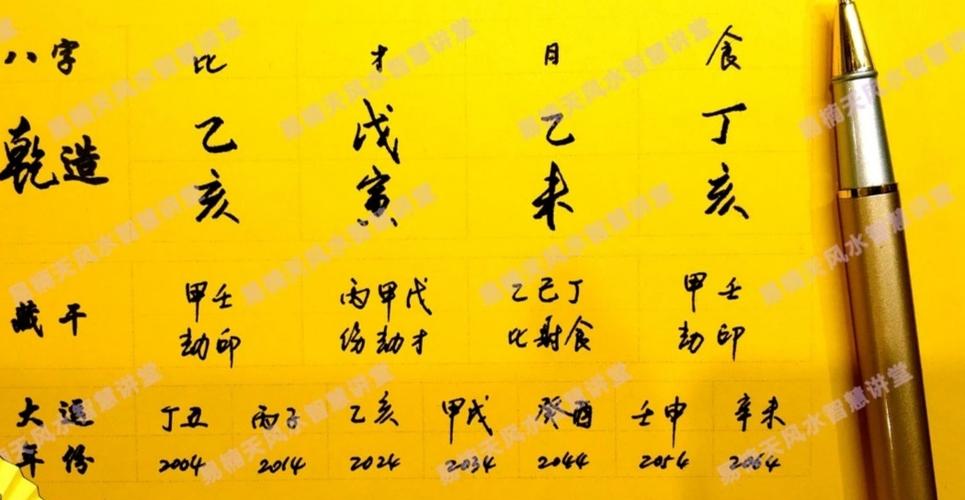 八字 比 才 日 食
乾造 乙 戊 乙 丁
亥 寅 未 亥
藏干 甲壬 丙甲戊 乙己丁 甲壬
劫印 伤劫才 比财食 劫印
大运 丁丑 丙子 乙亥 甲戌 癸酉 壬申 辛未
年份 2004 2014 2024 2034 2044 2054 2064
易楠天风水智慧讲堂